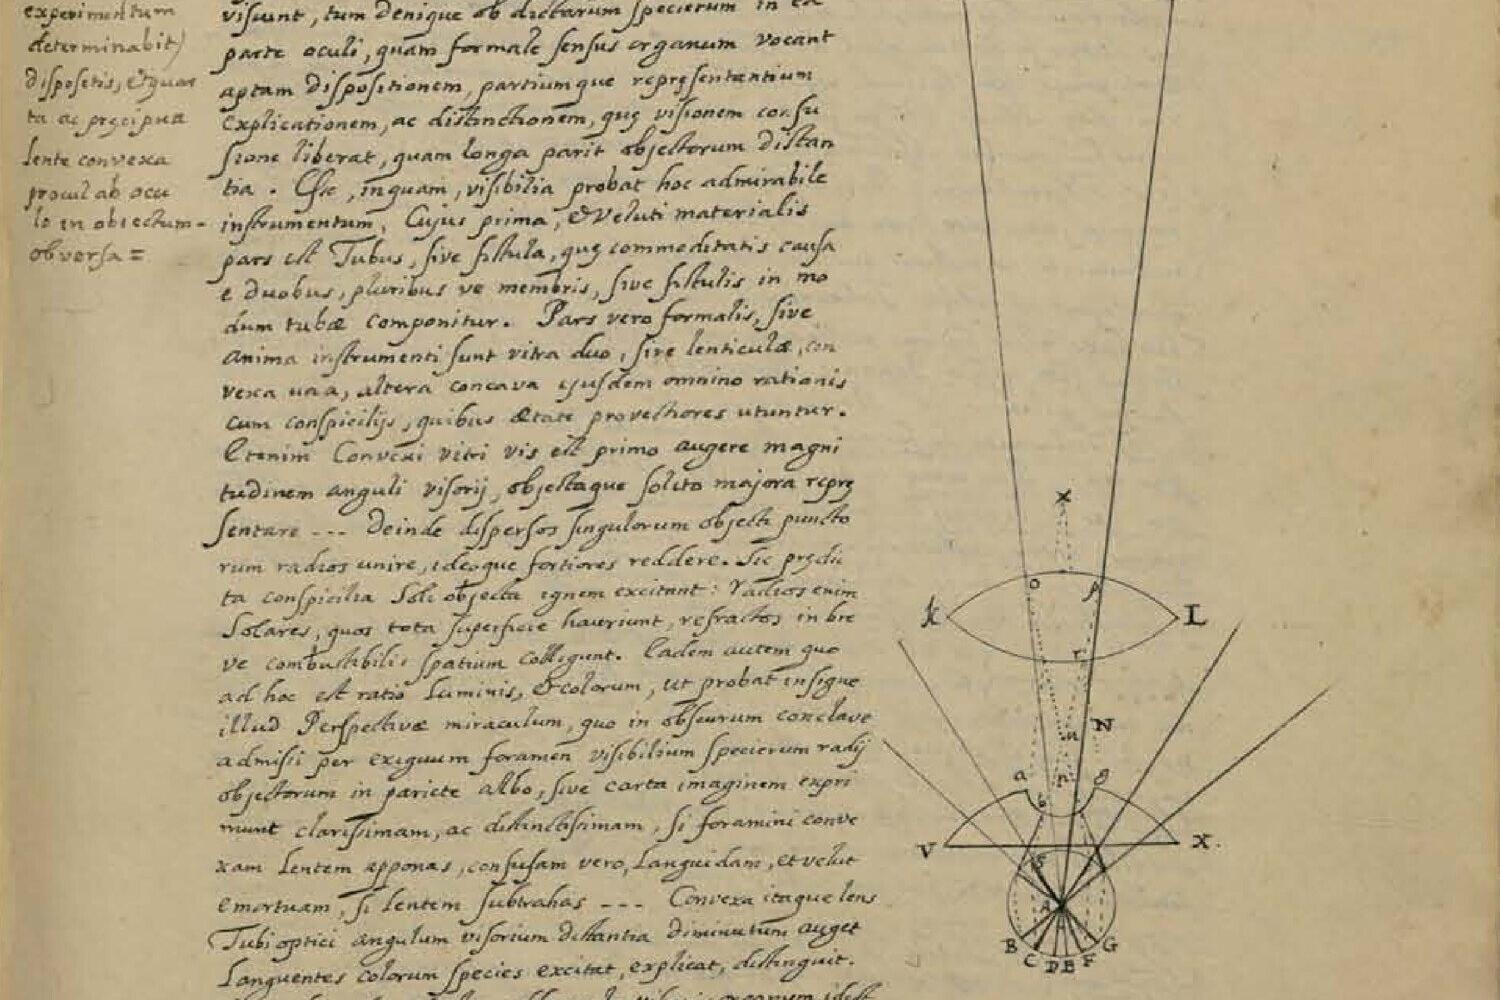 experimentum
determinabit)
dispositis, et quar
ta ac pręcipua
lente convexa
procul ab ocu
lo in obiectum-
obversa =
visunt, tum denique ob dictarum specierum in ea
parte oculi, quam formale sensus organum vocant
aptam dispositionem, partiumque repręsentantium
explicationem, ac distinctionem, quę visionem confu
sione liberat, quam longa parit objectorum distan
tia. Esse, inquam, visibilia probat hoc admirabile
instrumentum, Cujus prima, & veluti materialis
pars est Tubus, sive fistula, quę commoditatis causa
e duobus, pluribus ve membris, sive fistulis in mo
dum tubæ componitur. Pars vero formalis, sive
anima instrumenti sunt vitra duo, sive lenticulæ, con
vexa una, altera concava ejusdem omnino rationis
cum conspicilijs, quibus ætate provectiores utuntur.
Etenim Convexi vitri vis est primo augere magni
tudinem anguli visorij, objectaque solito majora reprę
sentare --- Deinde dispersos singulorum objecti puncto
rum radios unire, ideoque fortiores reddere. Sic prędic
ta conspicilia Soli objecta ignem excitant: radios enim
Solares, quos tota superficie hauriunt, refractos in bre
ve combustibilis spatium colligunt. Eadem autem quo
ad hoc est ratio luminis, & colorum, ut probat insigne
illud Perspectivæ miraculum, quo in obscurum conclave
admissi per exiguum foramen visibilium specierum radij
objectorum in pariete albo, sive carta imaginem expri
munt clarissimam, ac distinctissimam, si foramini conve
xam Lentem apponas, confusam vero, Languidam, et velut
emortuam, si Lentem subtrahas --- Convexa itaque lens
Tubi optici angulum visorium distantia diminutum auget
Languentes colorum species excitat, explicat, distinguit.
x
o p
k L
r
N
n
a p g
b
V x.
S
A
B C D E F G